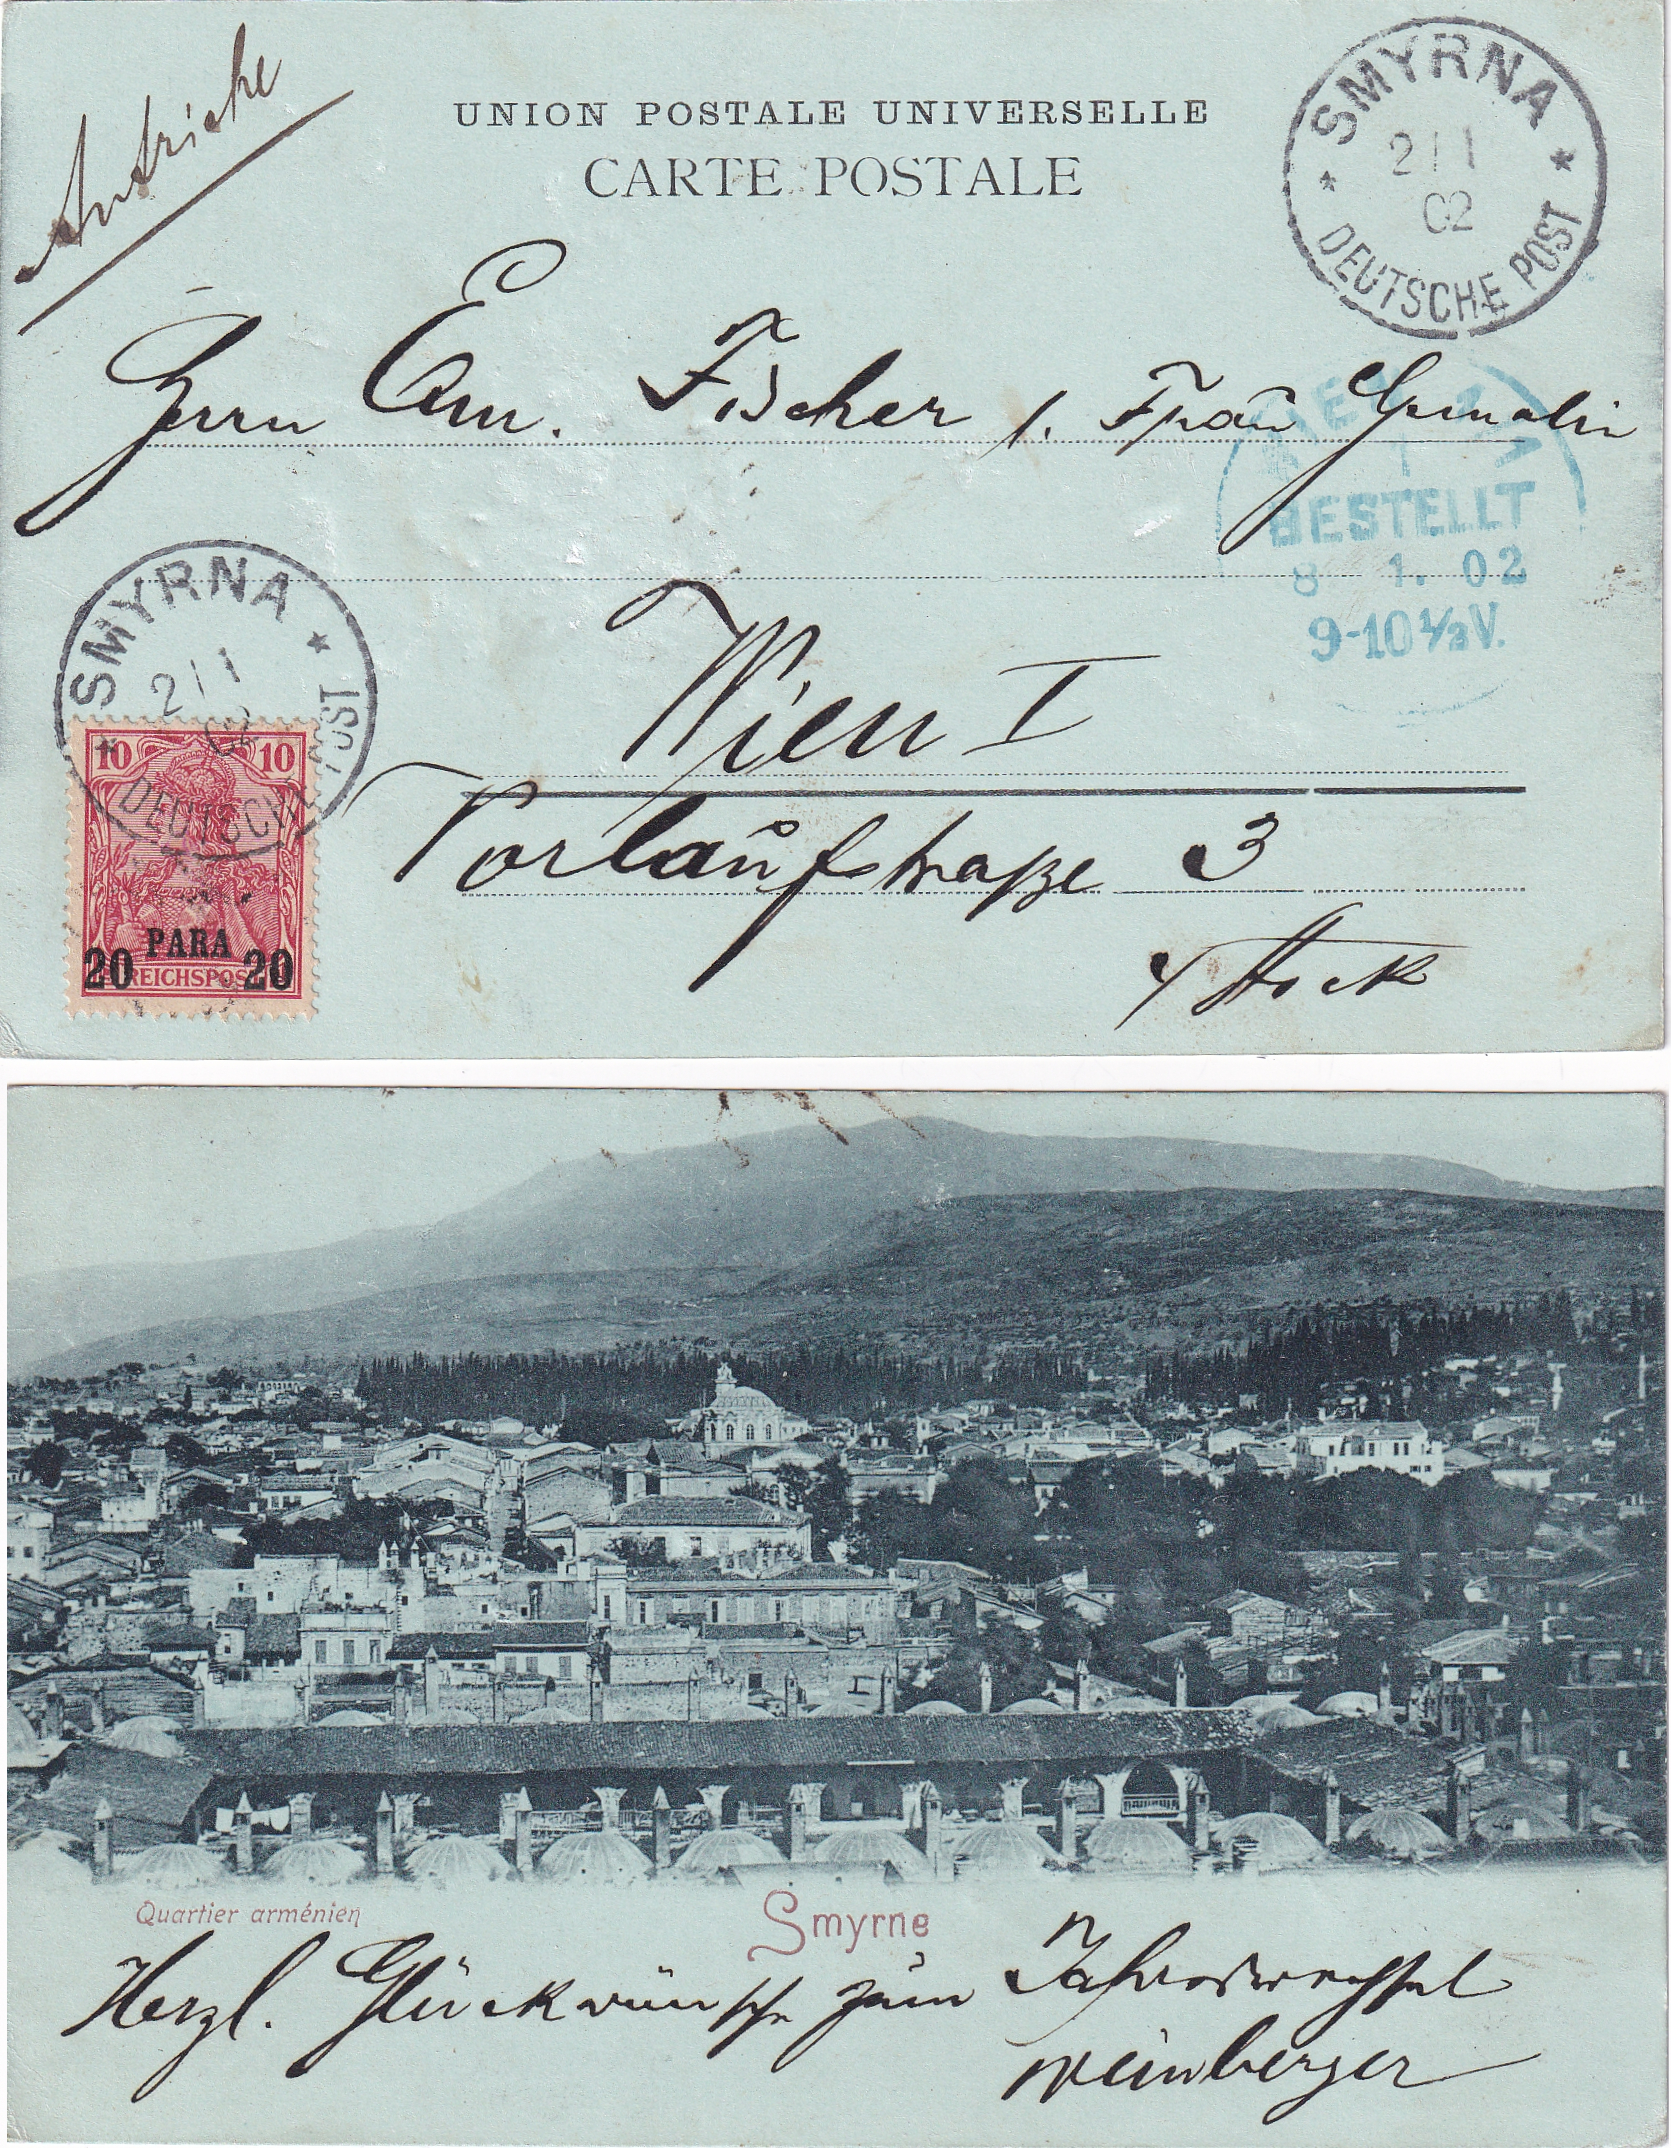 Autriche
UNION POSTALE UNIVERSELLE
CARTE POSTALE
SMYRNA
2/1
02
DEUTSCHE POST
Herrn Em. Fischer
Frau Gemalin
WIEN
1
BESTELLT
8 1. 02
9-10½V.
Wien I
Vorlaufstraße 3
Stock
SMYRNA
2/1
02
DEUTSCHE POST
10 10
PARA
20 20
REICHSPOST
Quartier arménien
Smyrne
Herzl. Glückwünsche zum Jahreswechsel
Weinberger